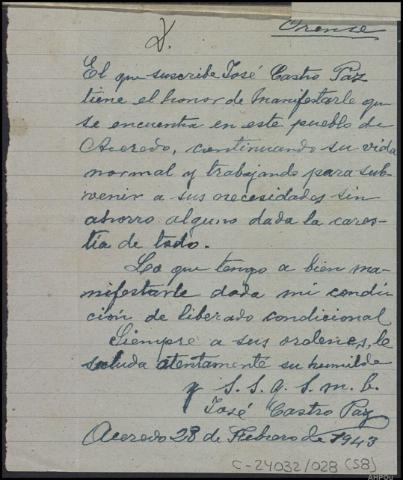 Orense
El que suscribe José Castro Paz
tiene el honor de manifestarle que
se encuentra en este pueblo de
Acevedo, continuando su vida
normal y trabajando para sub-
venir a sus necesidades sin
ahorro alguno dada la cares-
tía de todo.
Lo que tengo a bien ma-
nifestarle dada mi condi-
ción de liberado condicional
Siempre a sus ordenes, le
saluda atentamente su humilde
y S. S. q. S. m. b.
José Castro Paz
Acevedo 28 de Febrero de 1943
C-24032/028 (S8)
AHPOU